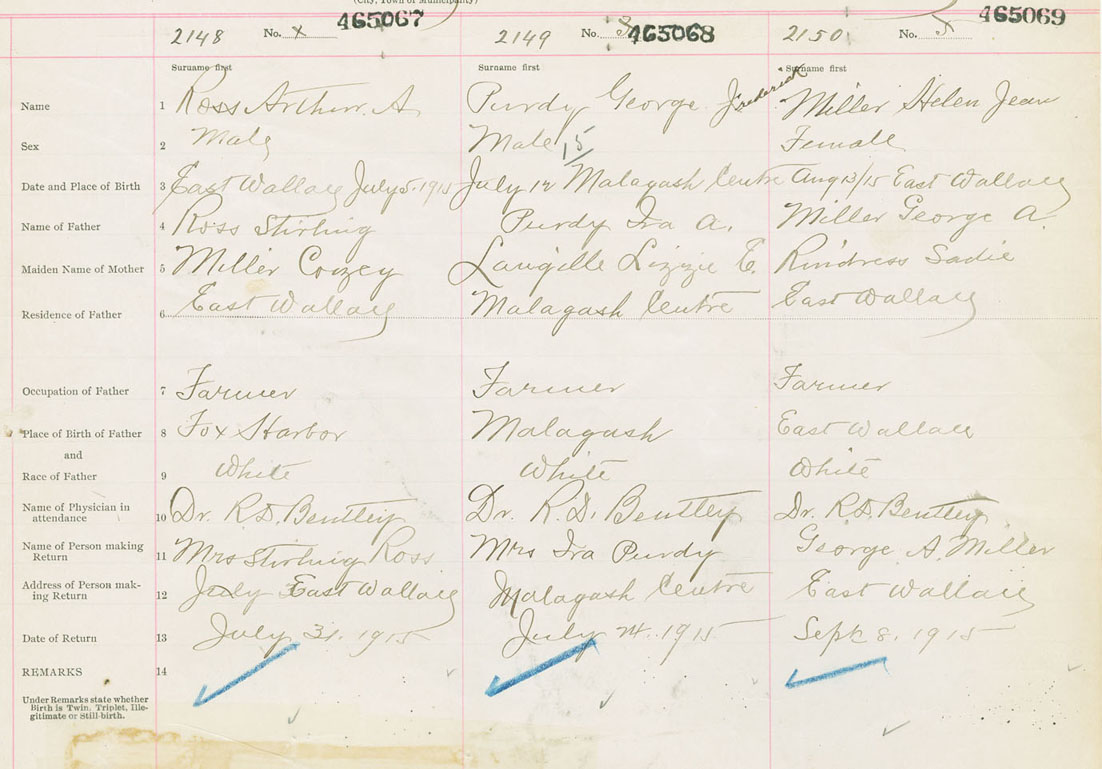 (City, Town or Municipality)
2148 No. x 465067 2149 No. 465068 2150 No. 465069
Surname first Surname first Surname first
Name 1 Ross Arthur A Purdy George Frederick Miller Helen Jean
Sex 2 Male Male Female
Date and Place of Birth 3 East Wallace July 5. 1915 July 12 15 Malagash Centre Aug 13/15 East Wallace
Name of Father 4 Ross Stirling Purdy Ira A. Miller George A.
Maiden Name of Mother 5 Miller Langille Lizzie E. Rindress Sadie
Residence of Father 6 East Wallace Malagash Centre East Wallace
Occupation of Father 7 Farmer Farmer Farmer
Place of Birth of Father 8 Fox Harbor Malagash East Wallace
and
Race of Father 9 White White White
Name of Physician in
attendance 10 Dr. R.D. Bentley Dr. R.D. Bentley Dr. R.D. Bentley
Name of Person making
Return 11 Mrs Stirling Ross Mrs Ira Purdy George A. Miller
Address of Person mak-
ing Return 12 July East Wallace Malagash Centre East Wallace
Date of Return 13 July 31. 1915 July 1915 Sept 8. 1915
REMARKS 14
Under Remarks state whether
Birth is Twin, Triplet, Ille-
gitimate or Still-birth.